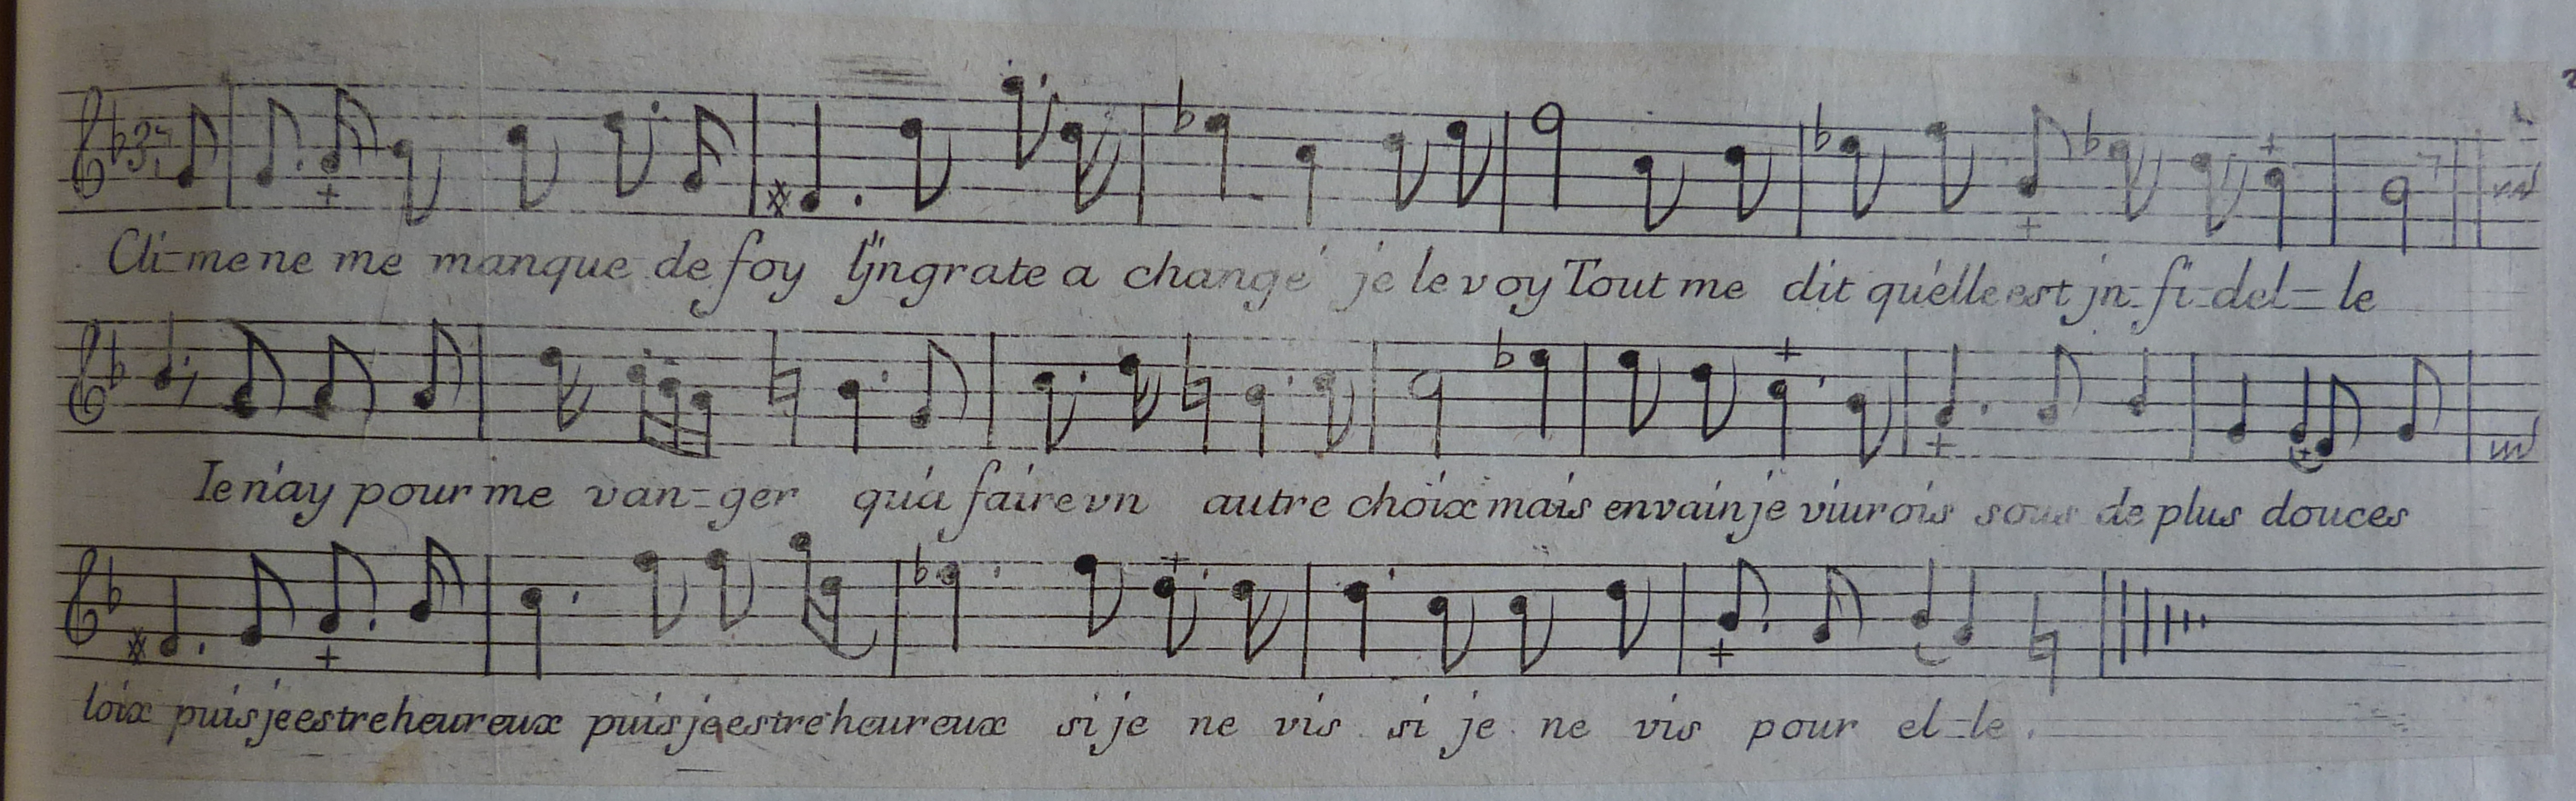 Cli-me ne me manque de foy l'jngrate a changé je le voy Tout me dit qu'elle est jn-fi-del-le
Ie n'ay pour me van-ger qu'a faire vn autre choix mais en vain je viurois sous de plus douces
loix puis je estre heureux puis je estre heureux si je ne vis si je ne vis pour el-le.